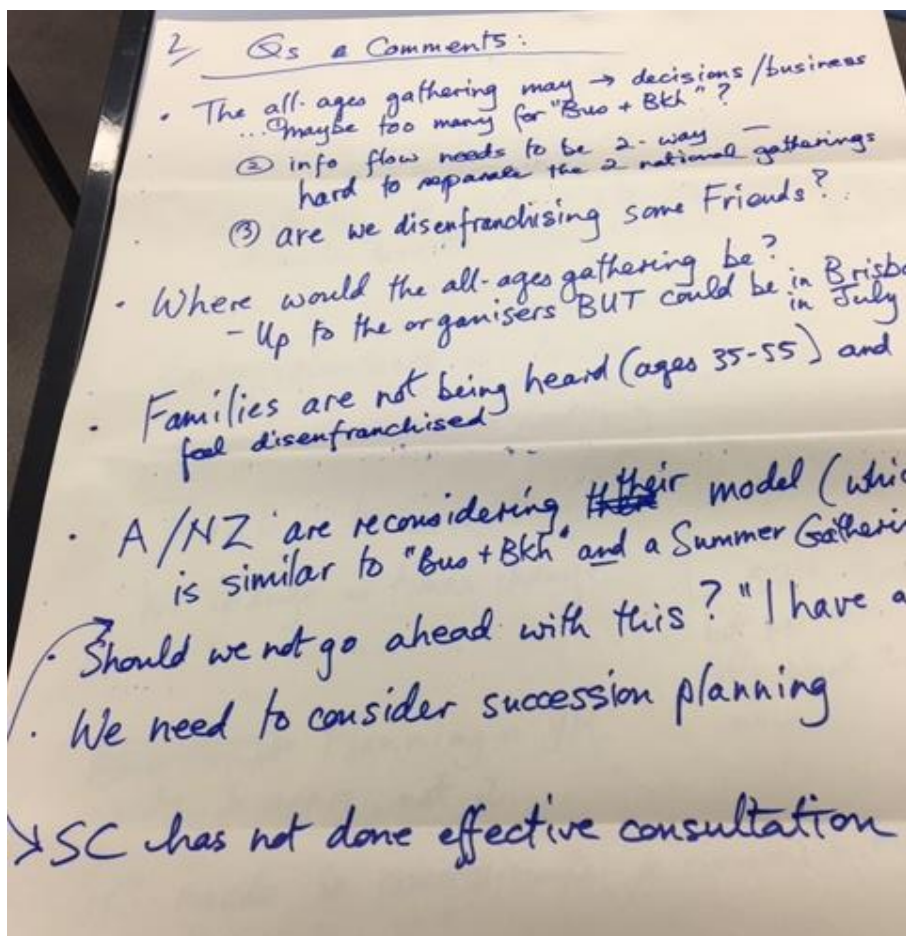 2/ Qs & Comments:
• The all-ages gathering may → decisions/business
... ① maybe too many for "Bus + Bkh"?
② info flow needs to be 2-way —
hard to separate the 2 national gatherings
③ are we disenfranchising some Friends?
• Where would the all-ages gathering be?
- Up to the organisers BUT could be in Brisba
in July
• Families are not being heard (ages 35-55) and
feel disenfranchised
• A/NZ are reconsidering their model (whic
is similar to "Bus + Bkh" and a Summer Gatherin
• Should we not go ahead with this? "I have a
• We need to consider succession planning
SC has not done effective consultation